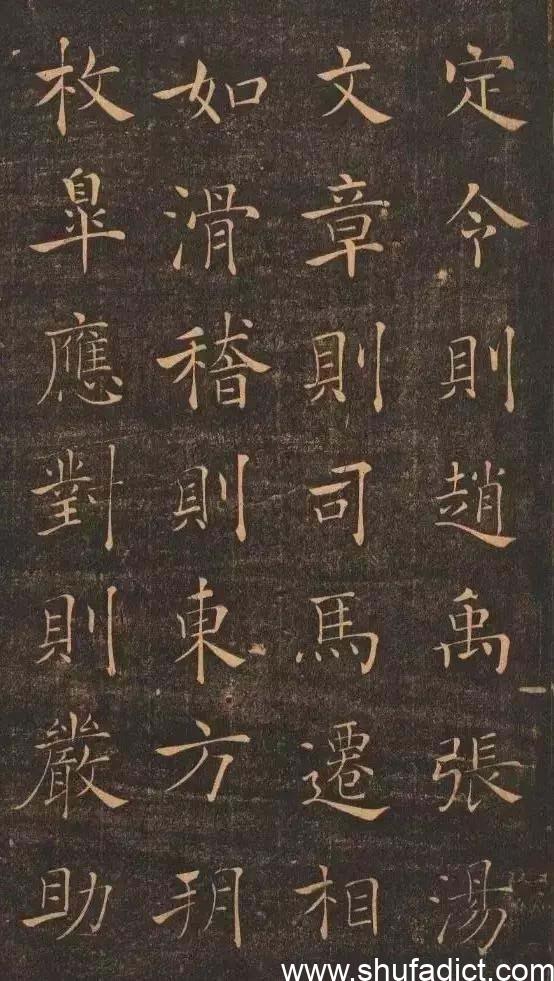 定令則趙禹張湯
文章則司馬遷相
如滑稽則東方朔
枚皋應對則嚴助
www.shufadict.com